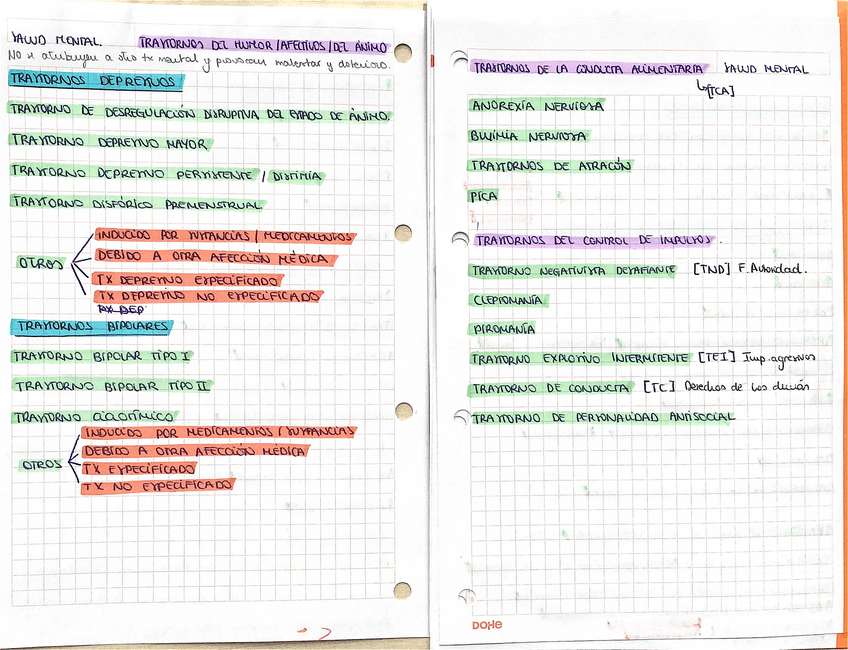 SALUD MENTAL. TRASTORNOS DEL HUMOR/AFECTIVOS/DEL ÁNIMO
No se atribuyen a otro tx mental y provocan malestar y deterioro.
TRASTORNOS DEPRESIVOS
TRASTORNO DE DESREGULACIÓN DISRUPTIVA DEL ESTADO DE ÁNIMO.
TRASTORNO DEPRESIVO MAYOR
TRASTORNO DEPRESIVO PERSISTENTE / DISTIMIA
TRASTORNO DISFÓRICO PREMENSTRUAL
OTROS
INDUCIDO POR SUSTANCIAS / MEDICAMENTOS
DEBIDO A OTRA AFECCIÓN MÉDICA
TX DEPRESIVO ESPECIFICADO
TX DEPRESIVO NO ESPECIFICADO
TX DEP
TRASTORNOS BIPOLARES
TRASTORNO BIPOLAR TIPO I
TRASTORNO BIPOLAR TIPO II
TRASTORNO CICLOTÍMICO
OTROS
INDUCIDO POR MEDICAMENTOS / SUSTANCIAS
DEBIDO A OTRA AFECCIÓN MÉDICA
TX ESPECIFICADO
TX NO ESPECIFICADO
TRASTORNOS DE LA CONDUCTA ALIMENTARIA SALUD MENTAL
[TCA]
ANOREXIA NERVIOSA
BULIMIA NERVIOSA
TRASTORNOS DE ATRACÓN
PICA
TRASTORNOS DEL CONTROL DE IMPULSOS.
TRASTORNO NEGATIVISTA DESAFIANTE [TND] F. Autoridad.
CLEPTOMANÍA
PIROMANÍA
TRASTORNO EXPLOSIVO INTERMITENTE [TEI] Imp. agresivos
TRASTORNO DE CONDUCTA [TC] Derechos de los demás
TRASTORNO DE PERSONALIDAD ANTISOCIAL
DOHE